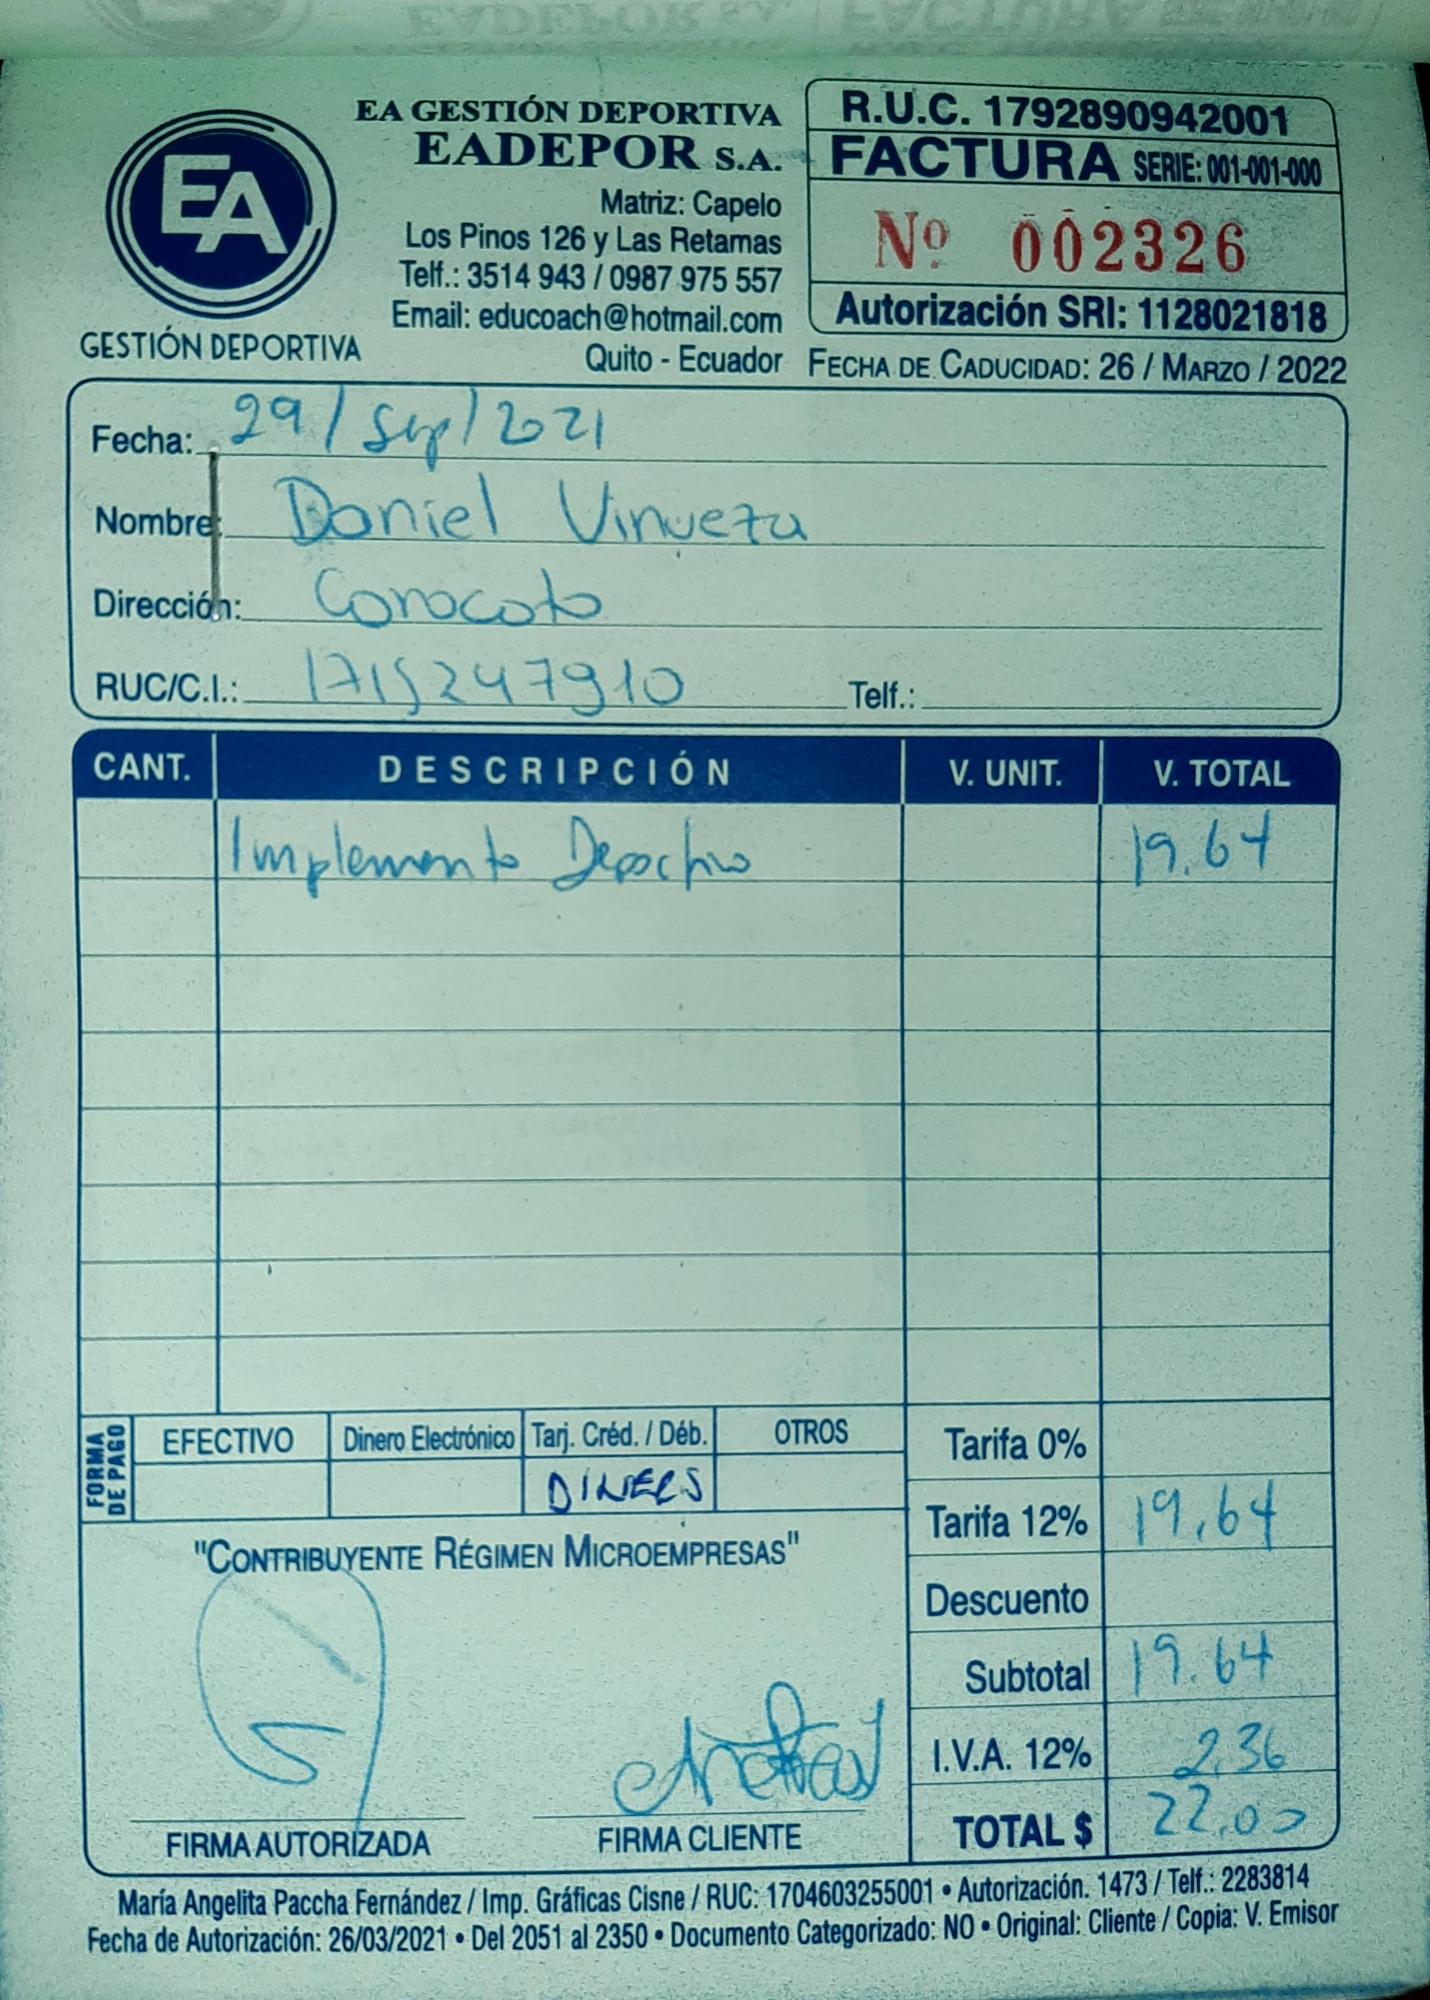 EA GESTIÓN DEPORTIVA
EADEPOR S.A.
Matriz: Capelo
Los Pinos 126 y Las Retamas
Telf.: 3514 943 / 0987 975 557
Email: educoach@hotmail.com
Quito - Ecuador
EA
GESTIÓN DEPORTIVA
R.U.C. 1792890942001
FACTURA SERIE: 001-001-000
Nº 002326
Autorización SRI: 1128021818
FECHA DE CADUCIDAD: 26 / MARZO / 2022
Fecha: 29/Sep/2021
Nombre: Daniel Vinueza
Dirección: Conocoto
RUC/C.I.: 1715247910 Telf.:
CANT. DESCRIPCIÓN V. UNIT. V. TOTAL
Implemento Deportivo 19.64
FORMA DE PAGO
EFECTIVO Dinero Electrónico Tarj. Créd. / Déb. OTROS
DINERS
Tarifa 0%
Tarifa 12% 19.64
Descuento
Subtotal 19.64
I.V.A. 12% 2.36
TOTAL $ 22.00
"CONTRIBUYENTE RÉGIMEN MICROEMPRESAS"
FIRMA AUTORIZADA FIRMA CLIENTE
María Angelita Paccha Fernández / Imp. Gráficas Cisne / RUC: 1704603255001 • Autorización. 1473 / Telf.: 2283814
Fecha de Autorización: 26/03/2021 • Del 2051 al 2350 • Documento Categorizado: NO • Original: Cliente / Copia: V. Emisor